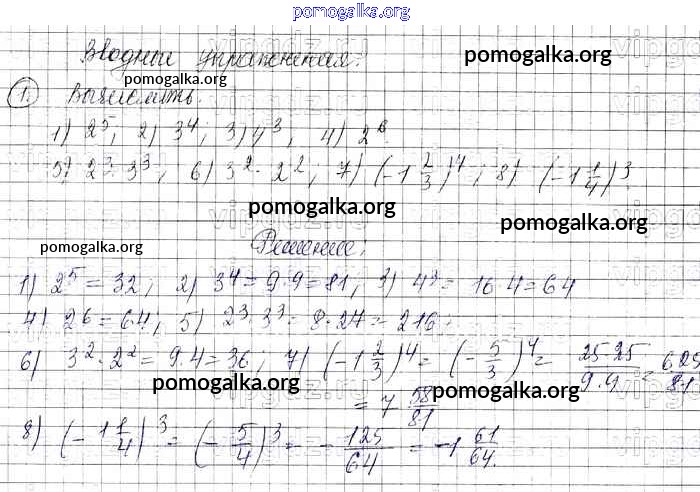 pomogalka.org
Вводные упражнения.
pomogalka.org
pomogalka.org
1. Вычислить.
1) 2^5; 2) 3^4; 3) 4^3; 4) 2^6
5) 2^3·3^3; 6) 3^2·2^2; 7) (-1 2/3)^4; 8) (-1 1/4)^3.
pomogalka.org
pomogalka.org
pomogalka.org
Решение:
1) 2^5 = 32; 2) 3^4 = 9·9 = 81; 3) 4^3 = 16·4 = 64
4) 2^6 = 64; 5) 2^3·3^3 = 8·27 = 216.
6) 3^2·2^2 = 9·4 = 36; 7) (-1 2/3)^4 = (-5/3)^4 = 25·25/9·9 = 625/81
pomogalka.org
pomogalka.org
= 7 58/81
8) (-1 1/4)^3 = (-5/4)^3 = -125/64 = -1 61/64.